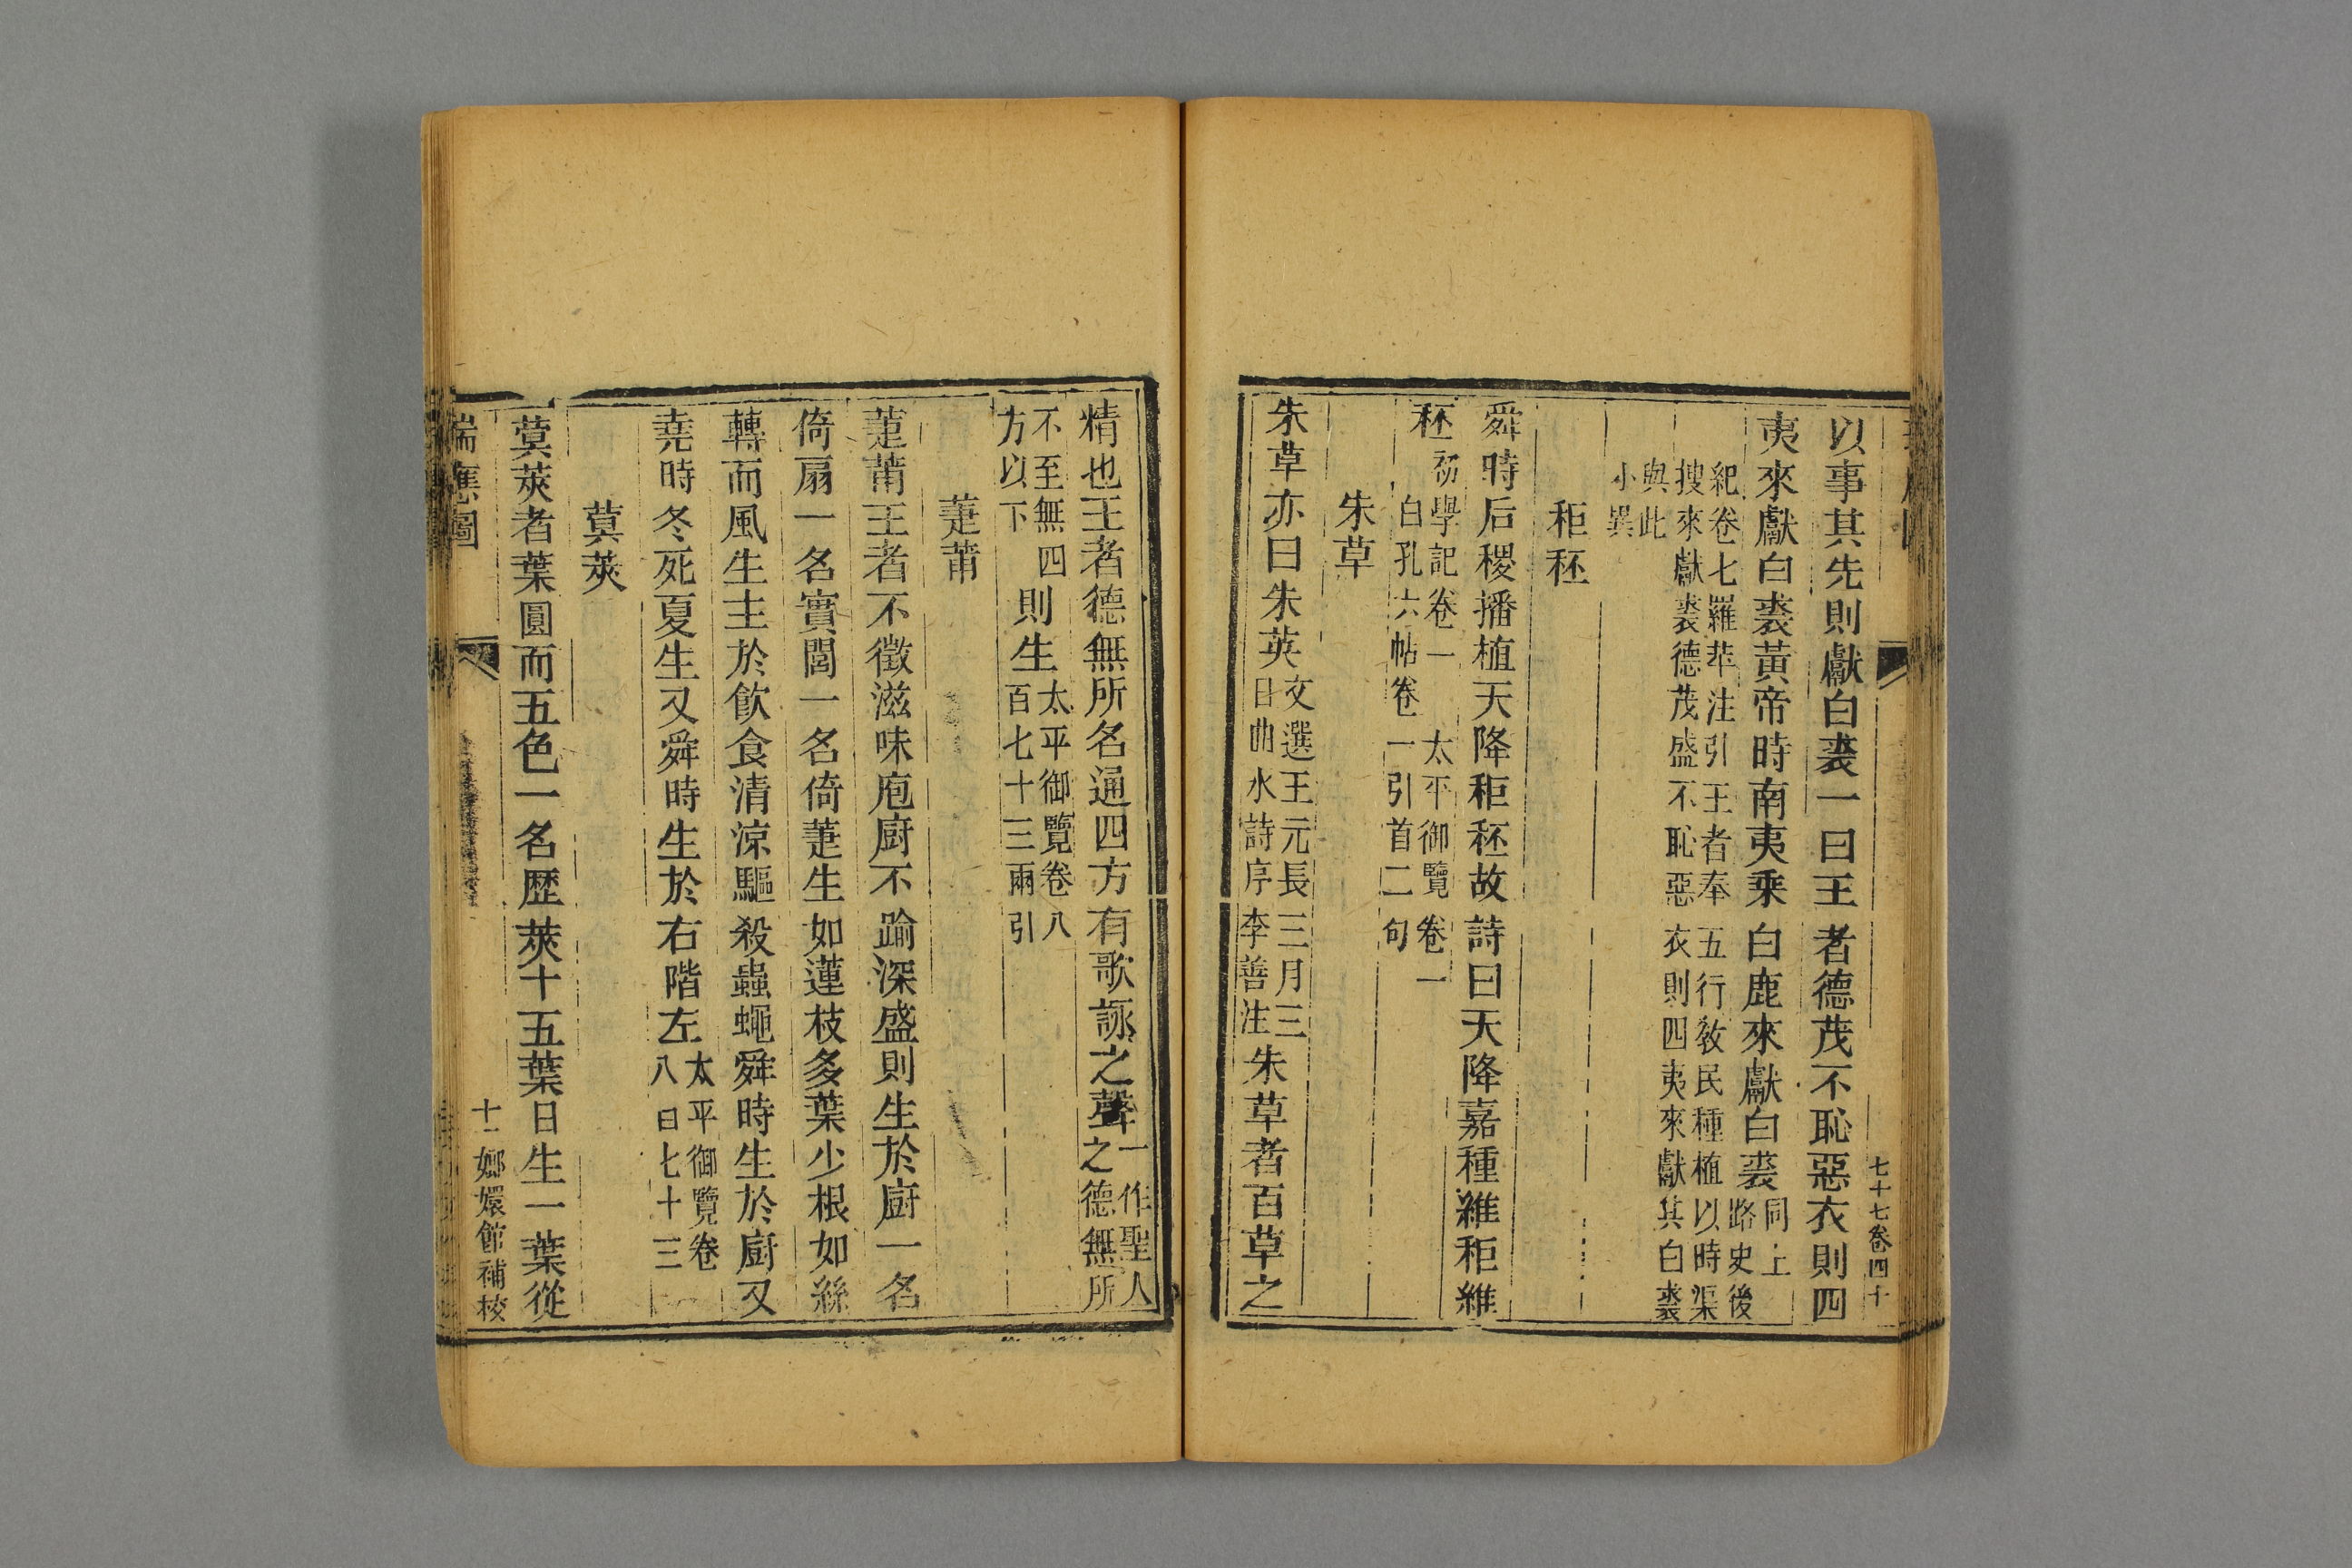 七十七卷四十
以事其先則獻白裘一曰王者德茂不恥惡衣則四
夷來獻白裘黃帝時南夷乘白鹿來獻白裘同上路史後
紀卷七羅苹注引王者奉五行敎民種植以時渠
搜來獻裘德茂盛不恥惡衣則四夷來獻其白裘
與此
小異
秬秠
舜時后稷播植天降秬秠故詩曰天降嘉種維秬維
秠初學記卷一 太平御覽卷一
白孔六帖卷一引首二句
朱草
朱草亦曰朱英文選王元長三月三日曲水詩序李善注朱草者百草之
精也王者德無所名通四方有歌詠之聲一作聖人之德無所
不至無四方以下則生太平御覽卷八百七十三兩引
萐莆
萐莆王者不徵滋味庖廚不踰深盛則生於廚一名
倚扇一名實閭一名倚萐生如蓮枝多葉少根如絲
轉而風生主於飲食清涼驅殺蟲蠅舜時生於廚又
堯時冬死夏生又舜時生於右階左太平御覽卷八百七十三
蓂莢
蓂莢者葉圓而五色一名歷莢十五葉日生一葉從
瑞應圖 十一 嫏嬛館補校